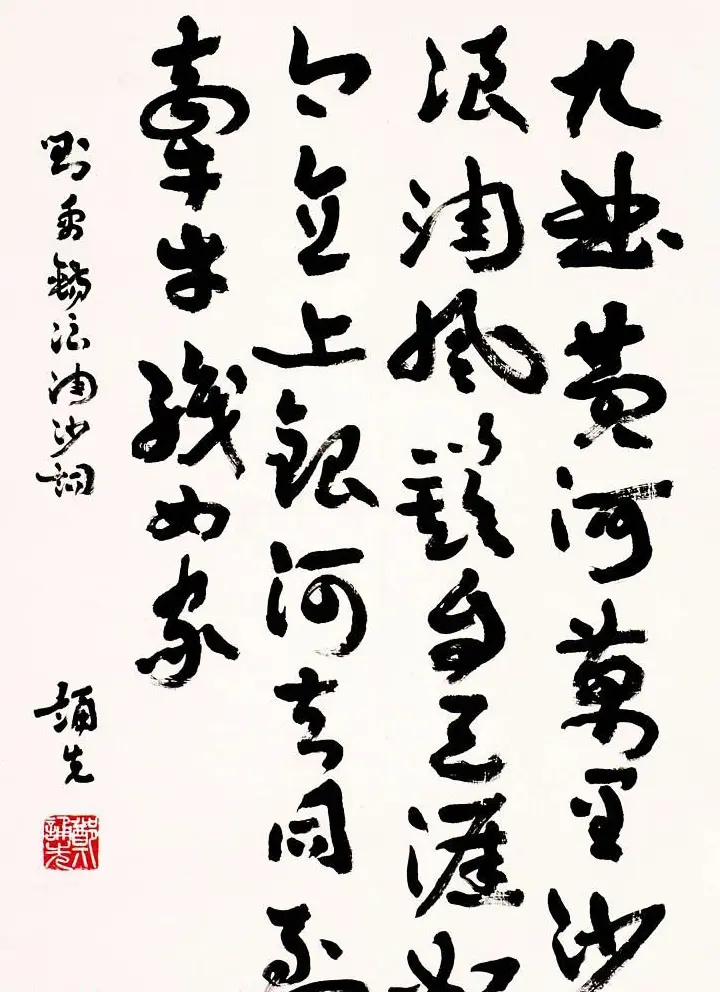 九曲黃河萬里沙
浪淘風簸自天涯如
今直上銀河去同到
牽牛織女家
劉禹錫浪淘沙詞
誦先
鄭誦先